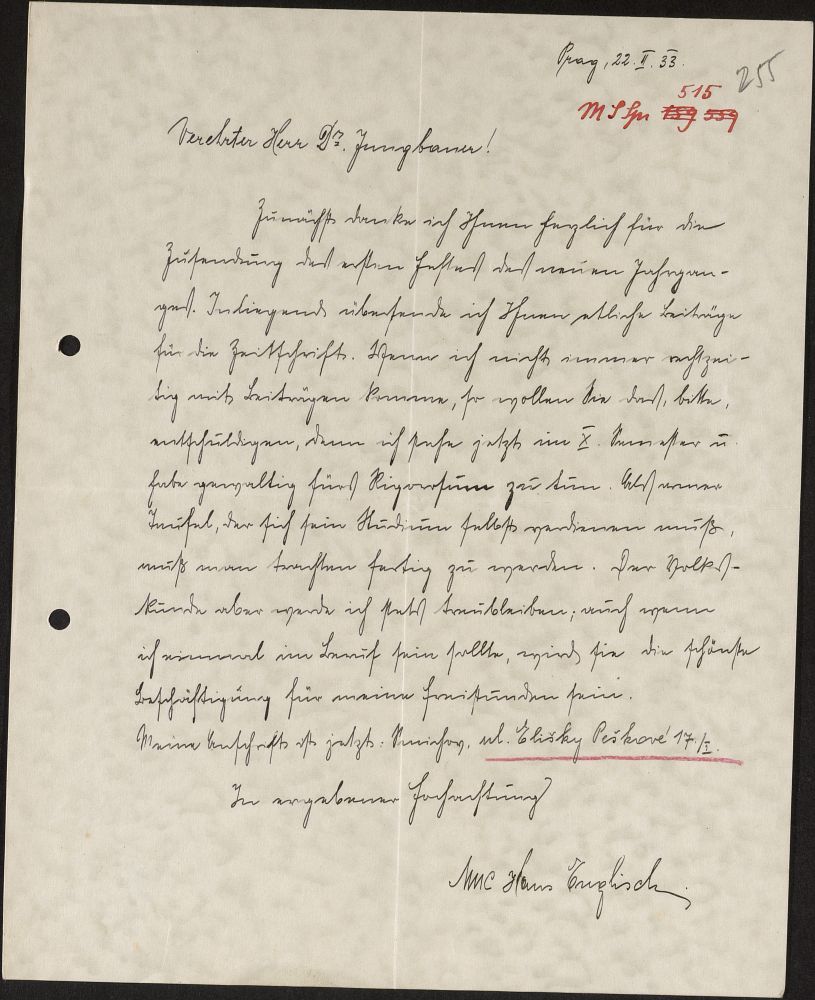 Prag, 22. II. 33.
255
515
M S Spr 159 559
Verehrter Herr Dr. Jungbauer!
Zunächst danke ich Ihnen herzlich für die
Zusendung des ersten Heftes des neuen Jahrgan-
ges. Inliegend übersende ich Ihnen etliche Beiträge
für die Zeitschrift. Wenn ich nicht immer rechtzei-
tig mit Beiträgen komme, so wollen Sie das, bitte,
entschuldigen, denn ich stehe jetzt im X. Semester u.
habe gewaltig fürs Rigorosum zu tun. Als armer
Teufel, der sich sein Studium selbst verdienen muß,
muß man trachten fertig zu werden. Der Volks-
kunde aber werde ich stets treubleiben; auch wenn
ich einmal im Beruf sein sollte, wird sie die schönste
Beschäftigung für meine Freistunden sein.
Meine Anschrift ist jetzt: Smichov, ul. Elišky Peškové 17./I.
In ergebener Hochachtung
MUC Hans Englisch.